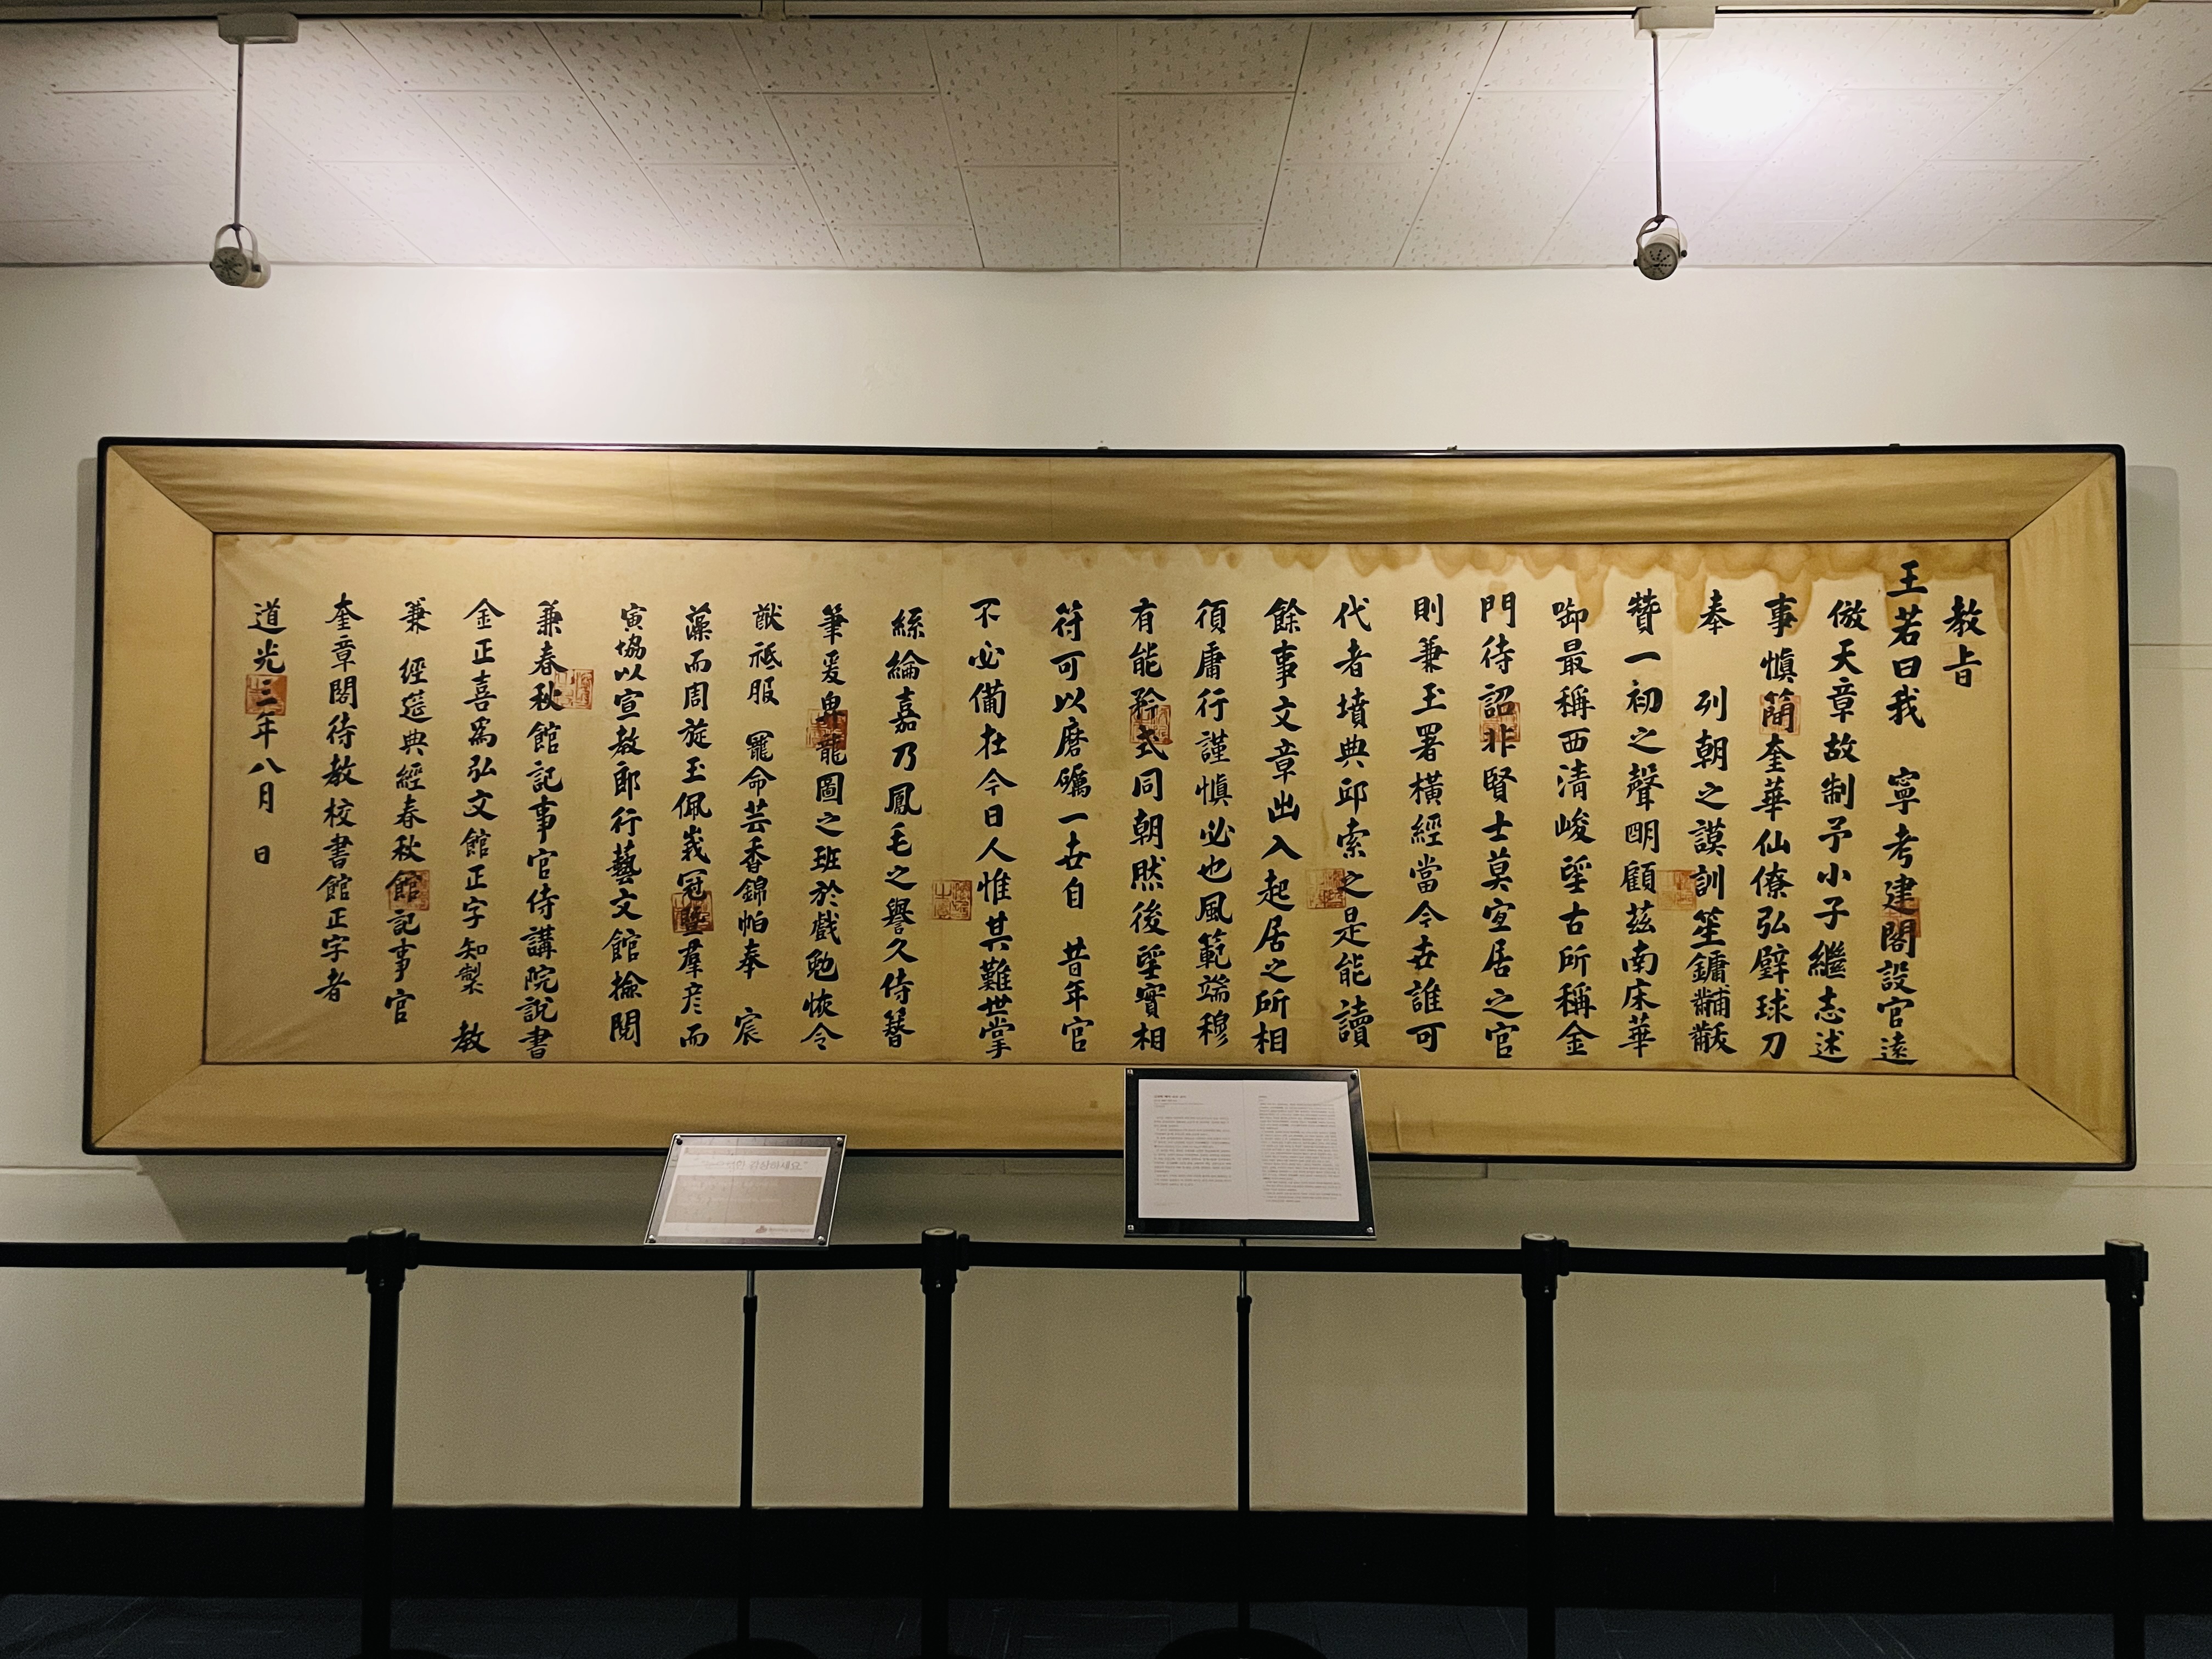 教旨
王若曰我 寧考建閣設官遠
倣天章故制予小子繼志述
事慎簡奎華仙僚弘璧球刀
奉 列朝之謨訓笙鏞黼黻
贊一初之聲明顧茲南床華
啣最稱西清峻望古所稱金
門待詔非賢士莫宜居之官
則兼玉署橫經當今世誰可
代者墳典邱索之是能讀
餘事文章出入起居之所相
須庸行謹慎必也風範端穆
有能矜式同朝然後望實相
符可以磨礪一世自 昔年官
不必備在今日人惟其難世掌
絲綸嘉乃鳳毛之譽久侍簪
筆爰卑龍圖之班於戲勉恢令
猷祗服 寵命芸香錦帕奉 宸
藻而周旋玉佩峩冠曁羣彦而
寅協以宣教郎行藝文館檢閱
兼春秋館記事官侍講院說書
金正喜爲弘文館正字知製 教
兼 經筵典經春秋館記事官
奎章閣待教校書館正字者
道光三年八月 日